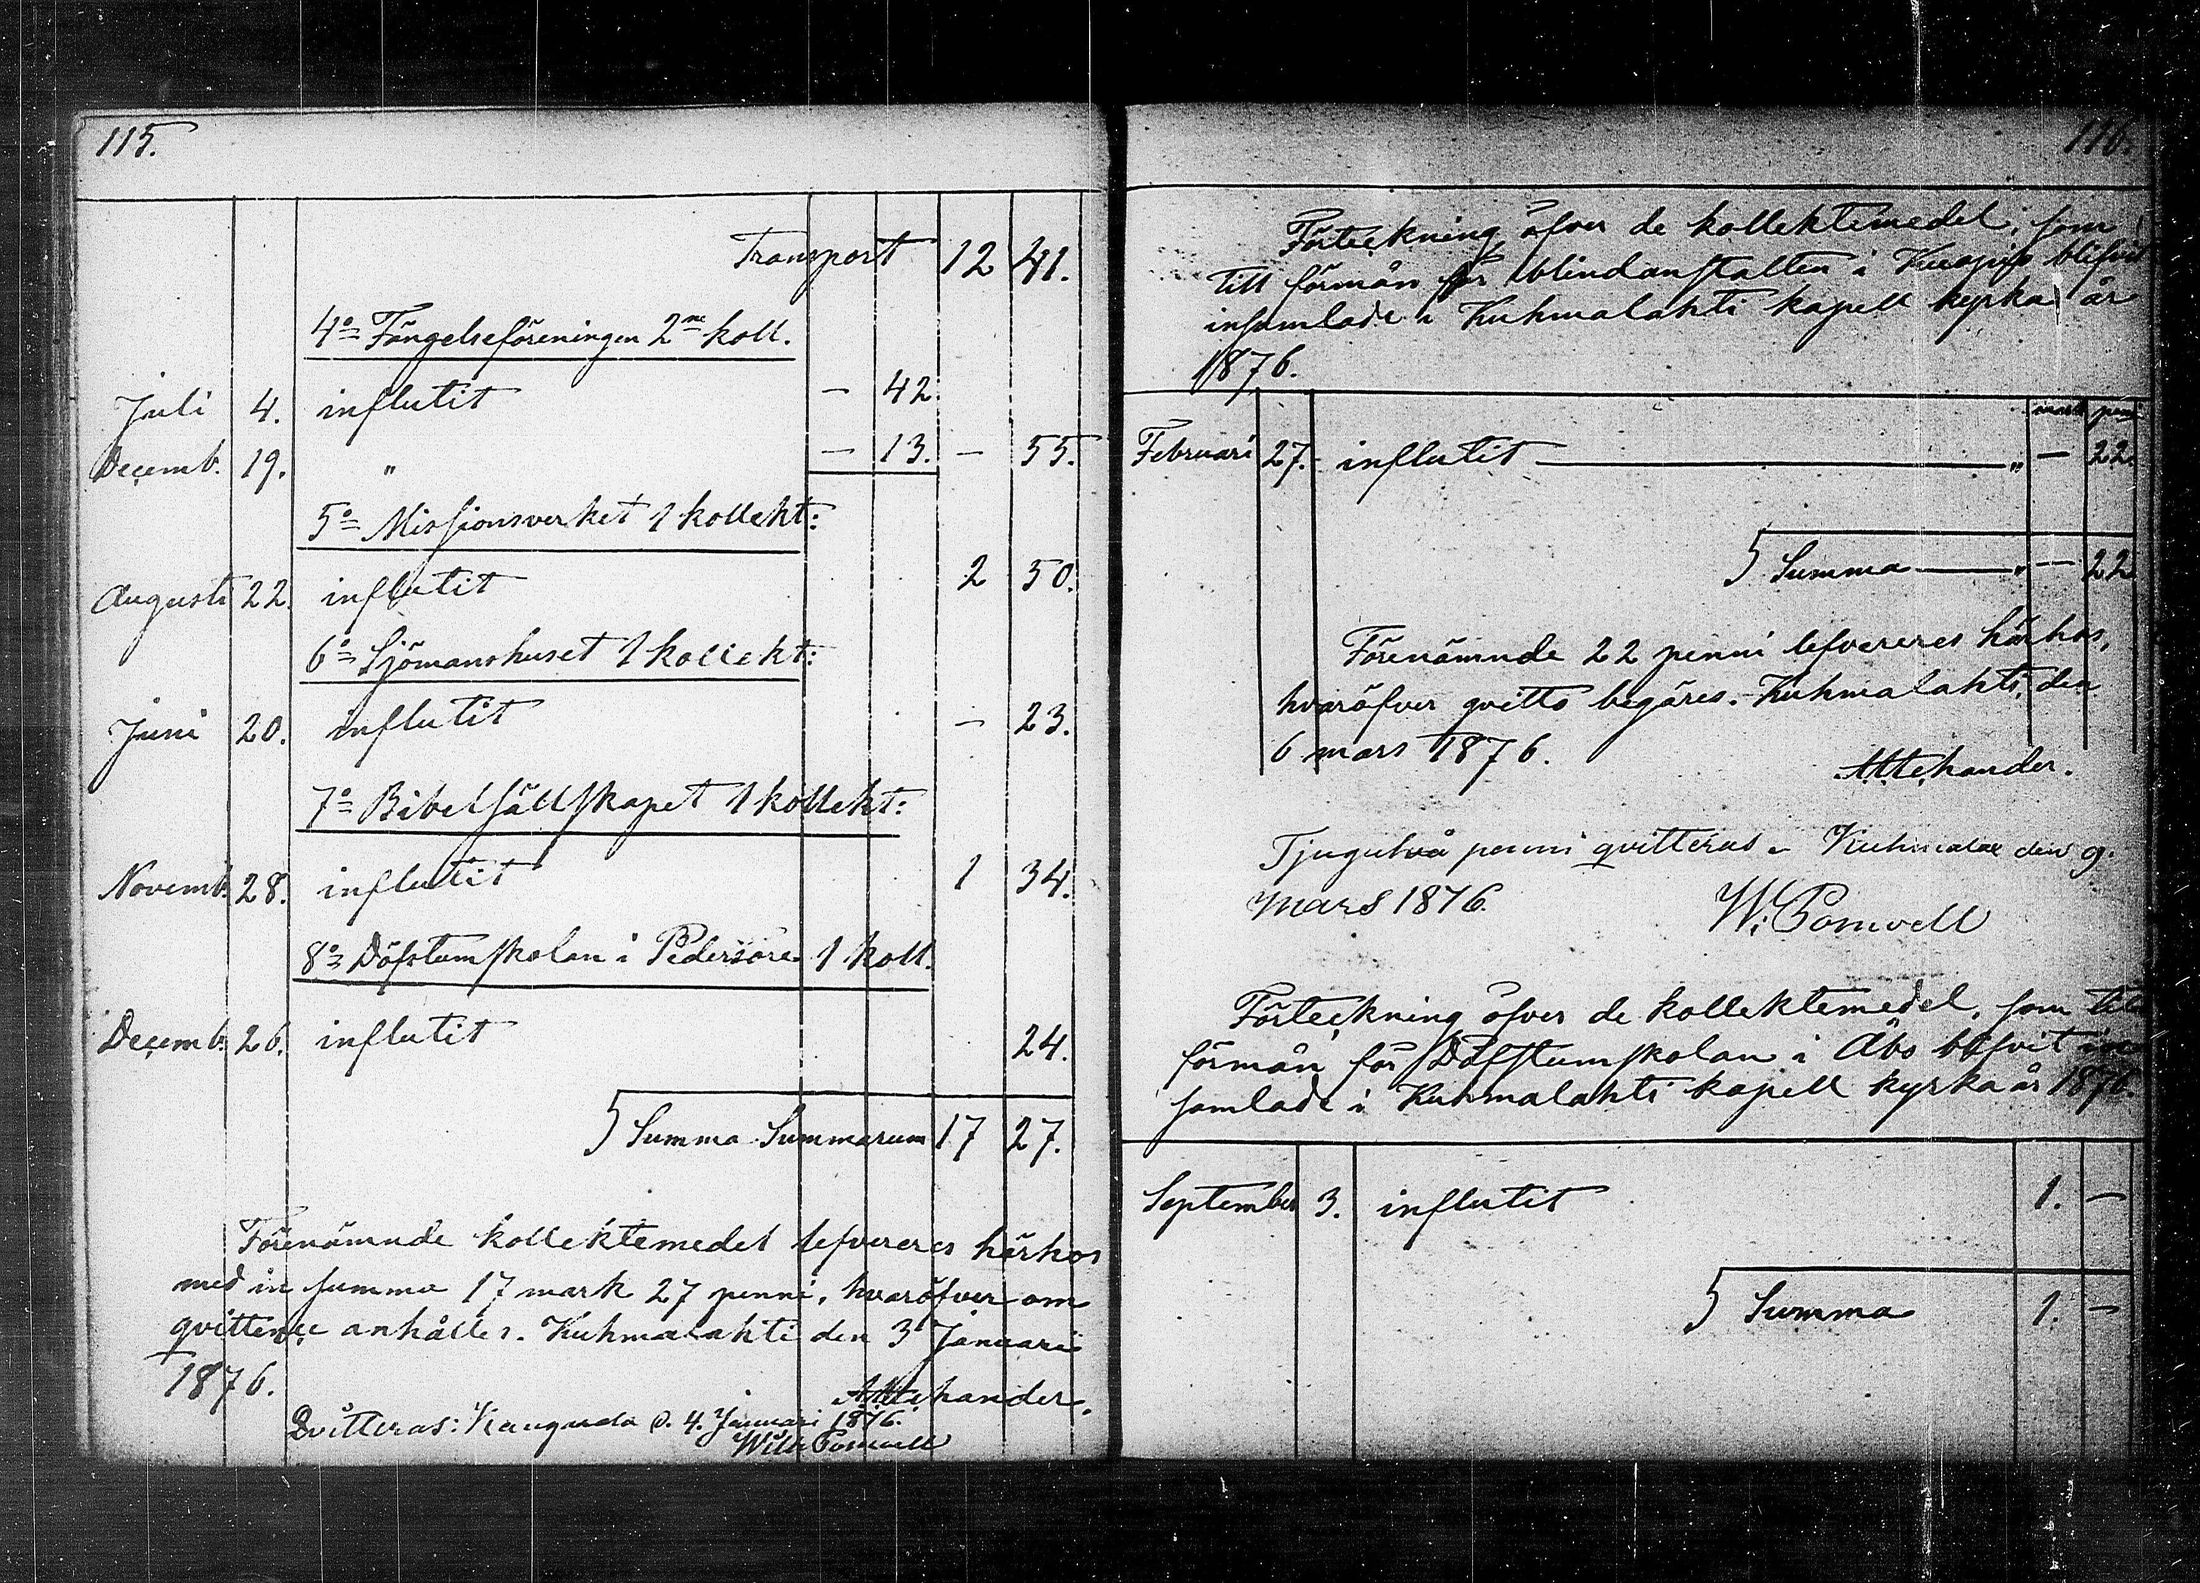 115.
Transport 12 41.
4:o Fängelseföreningen 2ne koll.
Juli 4. influtit — 42.
Decemb. 19. " — 13. — 55.
5:o Missionsverket 1 kollekt:
Augusti 22. influtit 2 50.
6:o Sjömanshuset 1 kollekt:
Juni 20. influtit — 23.
7:o Bibelsällskapet 1 kollekt:
Novemb. 28. influtit 1 34.
8:o Döfstumskolan i Pedersöre 1 koll.
Decemb. 26. influtit 24.
Summa Summarum 17 27.
Förenämnde kollektemedel lefvereres härhos
med in summa 17 mark 27 penni, hvaröfver om
qvittence anhålles. Kuhmalahti den 3 Januari
1876.
Qvitteras: Kangasala d. 4. Januari 1876.
Wilh Pomoell
116.
Förteckning öfver de kollektemedel, som
till förmån för blindanstalten i Kuopio blifvit
insamlade i Kuhmalahti kapell kyrka år
1876.
mark penni
Februari 27. influtit — " — 22.
Summa — " — 22
Förenämnde 22 penni lefvereres härhos,
hvaröfver qvitto begäres. Kuhmalahti, den
6 mars 1876.
Tjugutvå penni qvitteras. Kuhmalax den 9.
Mars 1876.
W. Pomoell
Förteckning öfver de kollektemedel, som till
förmån för Döfstumskolan i Åbo blifvit in
samlade i Kuhmalahti kapell kyrka år 1876.
September 3. influtit 1. —
Summa 1. —